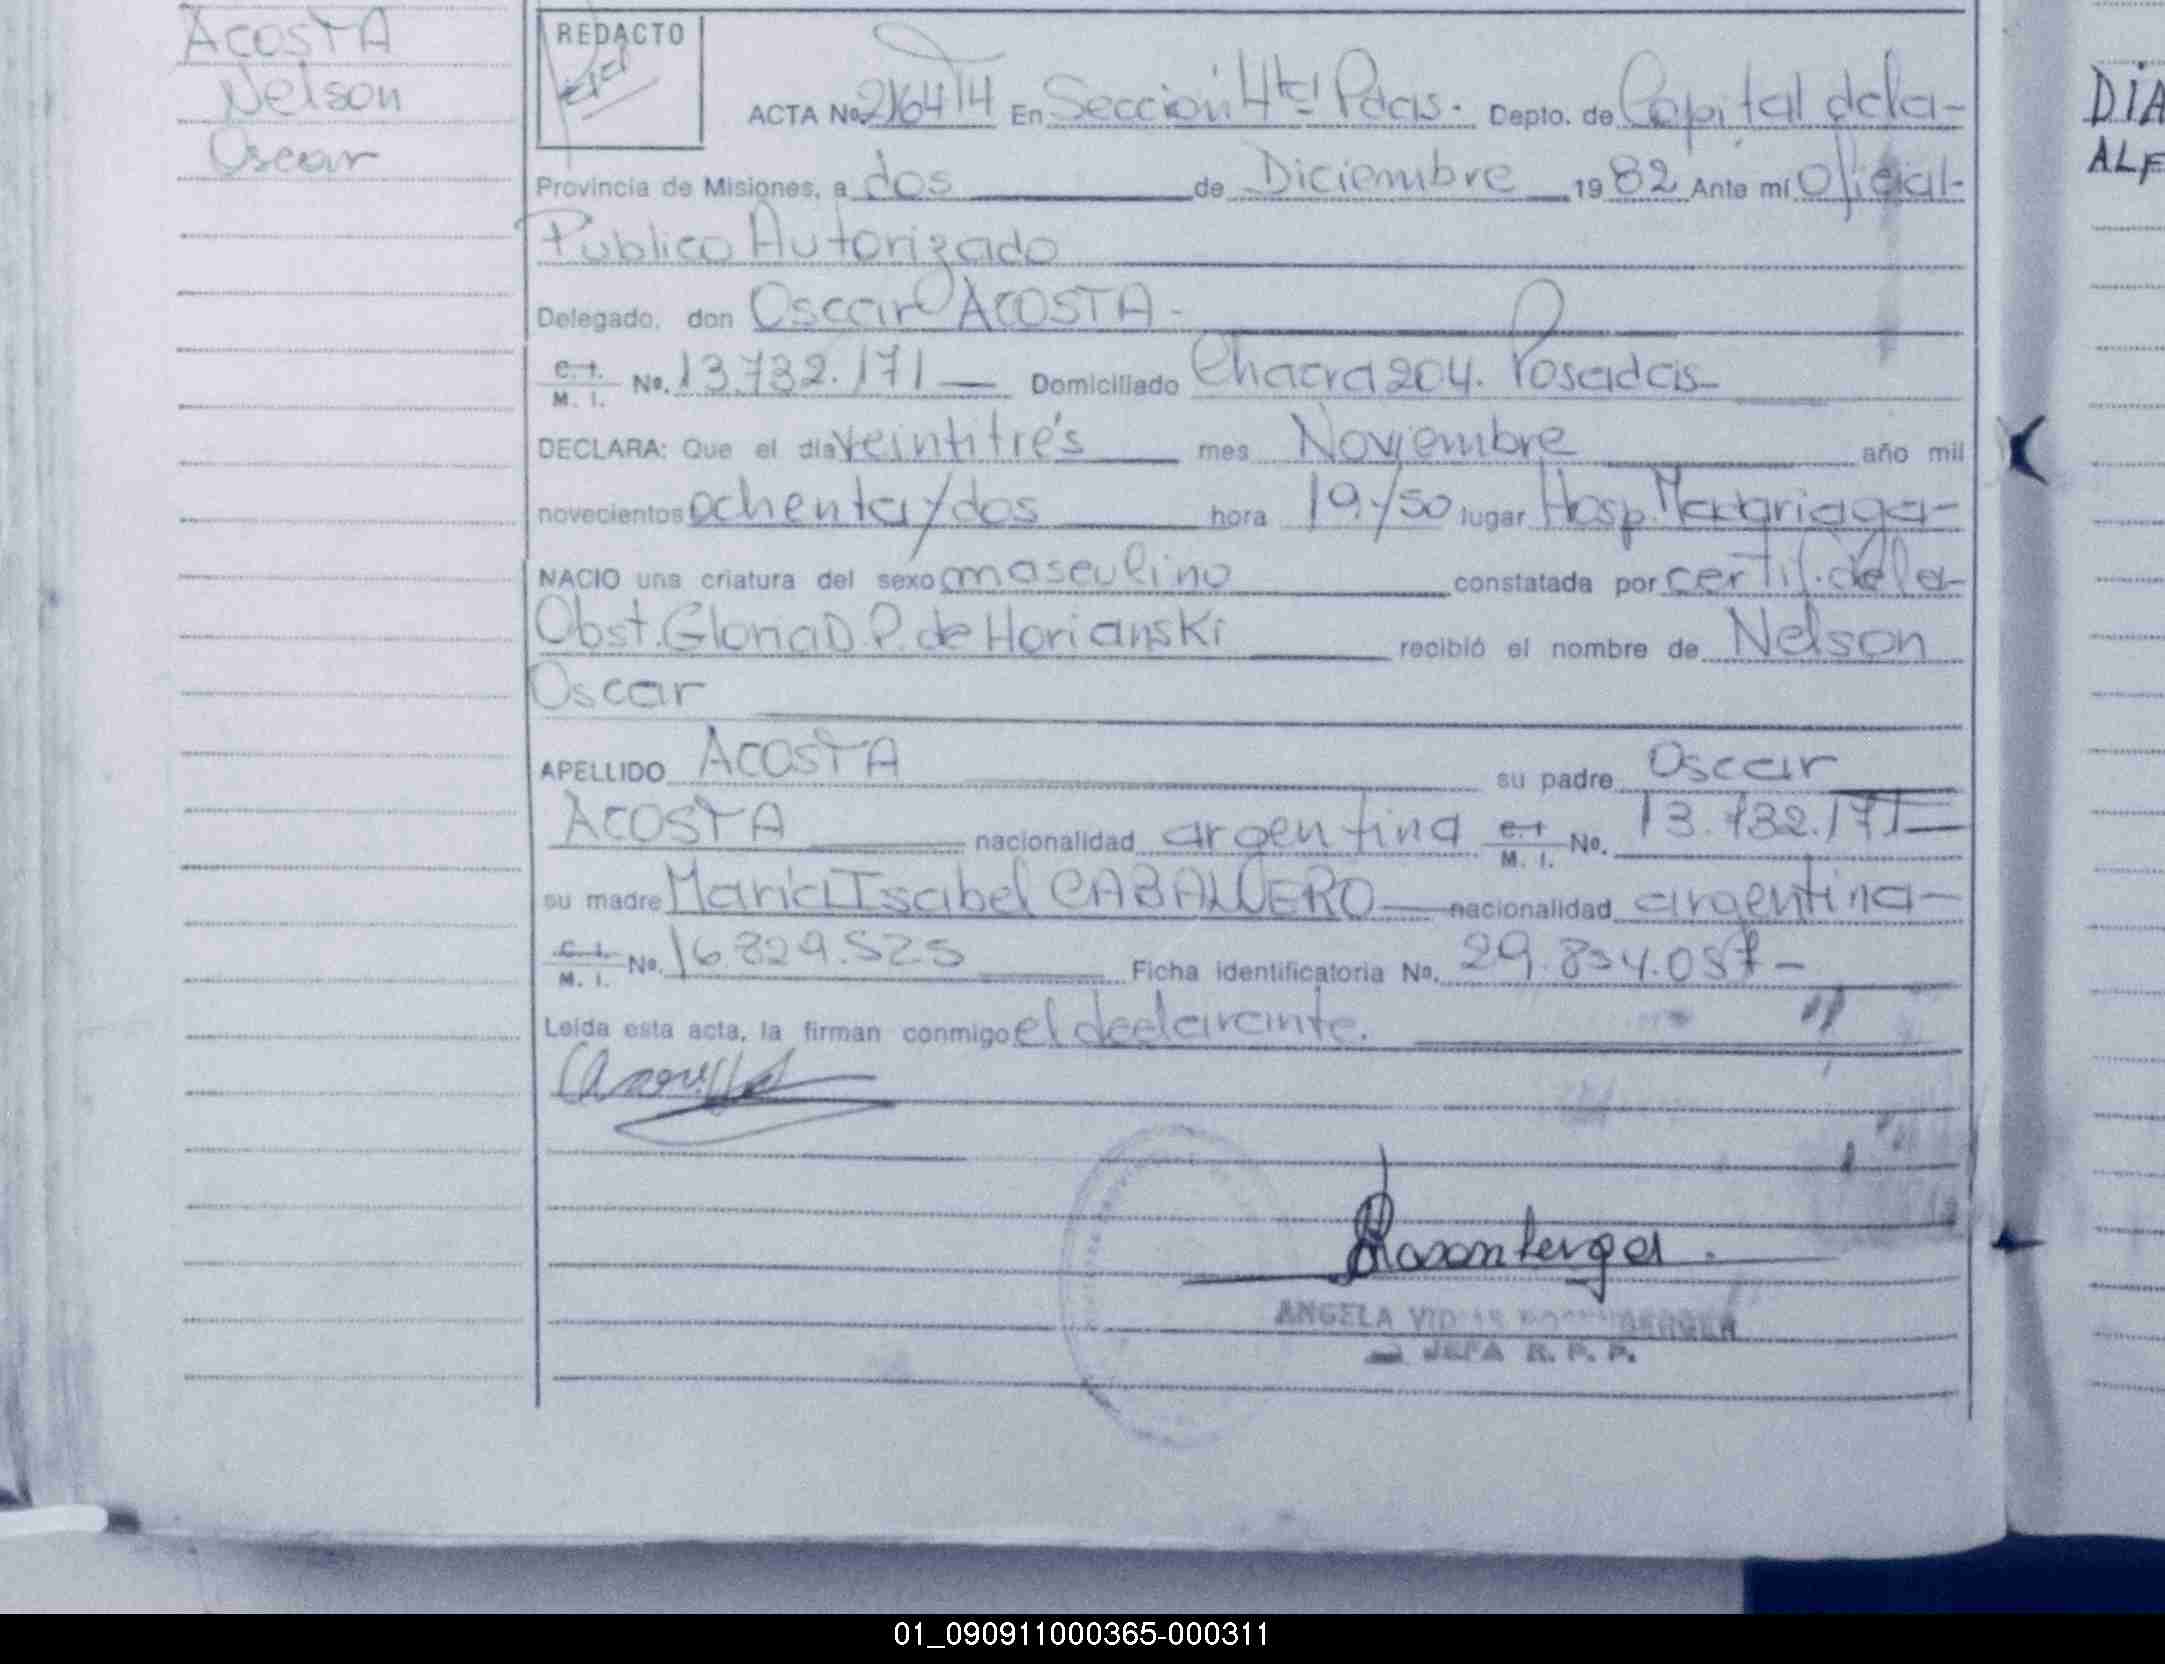 ACOSTA
Nelson
Oscar
REDACTO
ACTA No. En Sección 4ta Pdas. Depto. de Capital de la
Provincia de Misiones, a dos de Diciembre 1982 Ante mí Oficial
Publico Autorizado
Delegado, don Oscar ACOSTA
C. I. M. I. No. 13.732.171 Domiciliado Chacra 204. Posadas
DECLARA: Que el día veintitrés mes Noviembre año mil
novecientos ochenta y dos hora 19 y 50 lugar Hosp. Madariaga
NACIO una criatura del sexo masculino constatada por certif. de la
Obst. Gloria D. P. de Horianski recibió el nombre de Nelson
Oscar
APELLIDO ACOSTA su padre Oscar
ACOSTA nacionalidad argentina C. I. M. I. No. 13.732.171
su madre María Isabel CABALLERO nacionalidad argentina
C. I. M. I. No. 16.829.525 Ficha identificatoria No. 29.834.057
Leída esta acta, la firman conmigo el declarante.
ANGELA
JEFA R. P. P.
DIA
ALF
01_090911000365-000311